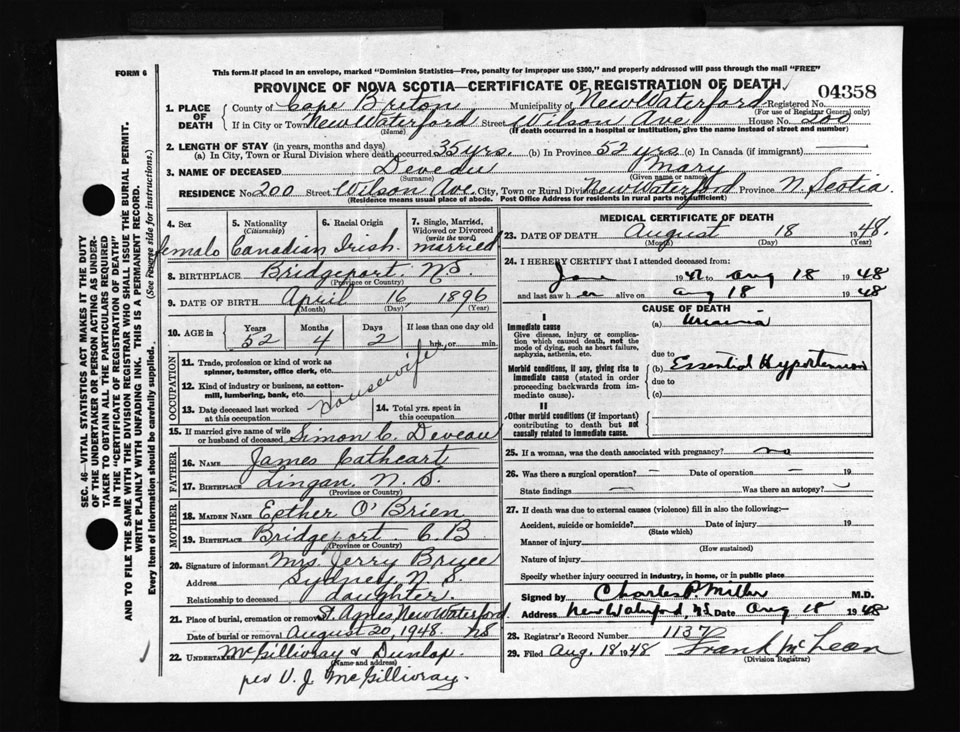 FORM 6
This form if placed in an envelope, marked "Dominion Statistics—Free, penalty for improper use $300," and properly addressed will pass through the mail "FREE"
PROVINCE OF NOVA SCOTIA—CERTIFICATE OF REGISTRATION OF DEATH
04358
1. PLACE OF DEATH County of Cape Breton Municipality of New Waterford Registered No.
(For use of Registrar General only)
If in City or Town New Waterford Street Wilson Ave House No. 200
(Name) (If death occurred in a hospital or institution, give the name instead of street and number)
2. LENGTH OF STAY (in years, months and days)
(a) In City, Town or Rural Division where death occurred 35 yrs. (b) In Province 52 yrs (c) In Canada (if immigrant)
3. NAME OF DECEASED Deveau Mary
(Surname) (Given name or names)
RESIDENCE No. 200 Street Wilson Ave. City, Town or Rural Division New Waterford Province N. Scotia
(Residence means usual place of abode. Post Office Address for residents in rural parts not sufficient)
4. Sex 5. Nationality (Citizenship) 6. Racial Origin 7. Single, Married, Widowed or Divorced (write the word)
female Canadian Irish. married
8. BIRTHPLACE Bridgeport, NS.
(Province or Country)
9. DATE OF BIRTH April 16, 1896
(Month) (Day) (Year)
10. AGE in Years Months Days If less than one day old
52 4 2 hrs. or min.
OCCUPATION
11. Trade, profession or kind of work as spinner, teamster, office clerk, etc.
12. Kind of industry or business, as cotton-mill, lumbering, bank, etc.
Housewife
13. Date deceased last worked at this occupation
14. Total yrs. spent in this occupation
15. If married give name of wife or husband of deceased Simon C. Deveau
FATHER
16. NAME James Cathcart
17. BIRTHPLACE Lingan, N. S.
(Province or Country)
MOTHER
18. MAIDEN NAME Esther O'Brien
19. BIRTHPLACE Bridgeport, C. B
(Province or Country)
20. Signature of informant Mrs. Jerry Bryce
Address Sydney, N. S.
Relationship to deceased daughter.
21. Place of burial, cremation or removal St. Agnes, New Waterford
Date of burial or removal August 20, 1948. NS
22. UNDERTAKER McGillivray & Dunlop.
(Name and address)
per V. J. McGillivray.
MEDICAL CERTIFICATE OF DEATH
23. DATE OF DEATH August 18 1948.
(Month) (Day) (Year)
24. I HEREBY CERTIFY that I attended deceased from:
June 19 to Aug 18 1948
and last saw her alive on Aug 18 1948
CAUSE OF DEATH
I
Immediate cause
Give disease, injury or complication which caused death, not the mode of dying, such as heart failure, asphyxia, asthenia, etc.
(a) Uraemia
due to
Morbid conditions, if any, giving rise to immediate cause (stated in order proceeding backwards from immediate cause).
(b) Essential Hypertension
due to
(c)
II
Other morbid conditions (if important) contributing to death but not causally related to immediate cause.
25. If a woman, was the death associated with pregnancy? no
26. Was there a surgical operation? — Date of operation — 19
State findings — Was there an autopsy?
27. If death was due to external causes (violence) fill in also the following:—
Accident, suicide or homicide? Date of injury 19
(State which)
Manner of injury
(How sustained)
Nature of injury
Specify whether injury occurred in industry, in home, or in public place
Signed by Charles P. Miller M.D.
Address New Waterford, N.S. Date Aug 18 1948
28. Registrar's Record Number 1137
29. Filed Aug. 18 1948 Frank McLean
(Division Registrar)
SEC. 46—VITAL STATISTICS ACT MAKES IT THE DUTY
OF THE UNDERTAKER OR PERSON ACTING AS UNDER-
TAKER TO OBTAIN ALL THE PARTICULARS REQUIRED
IN THE "CERTIFICATE OF REGISTRATION OF DEATH"
AND TO FILE THE SAME WITH THE DIVISION REGISTRAR WHO SHALL ISSUE THE BURIAL PERMIT.
WRITE PLAINLY WITH UNFADING INK. THIS IS A PERMANENT RECORD.
Every item of information should be carefully supplied. (See reverse side for instructions.)